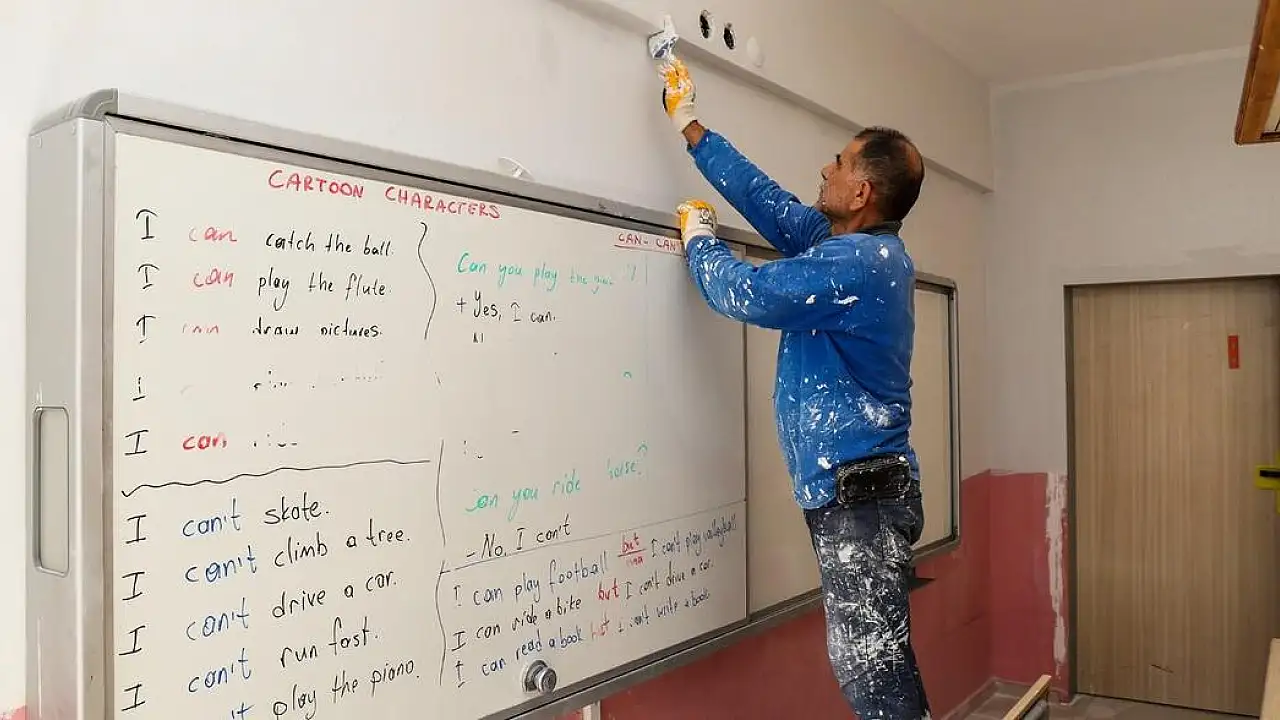 CARTOON CHARACTERS
I can catch the ball.
I can play the flute.
I draw pictures.
I
I can
I can't skate.
I can't climb a tree.
I can't drive a car.
I can't run fast.
play the piano.
CAN-
Can you play the
+ Yes, I can.
you ride horse?
- No, I can't
I can play football but I can't play volleyball.
I can ride a bike but I can't drive a car.
I can read a book but I can't write a book.